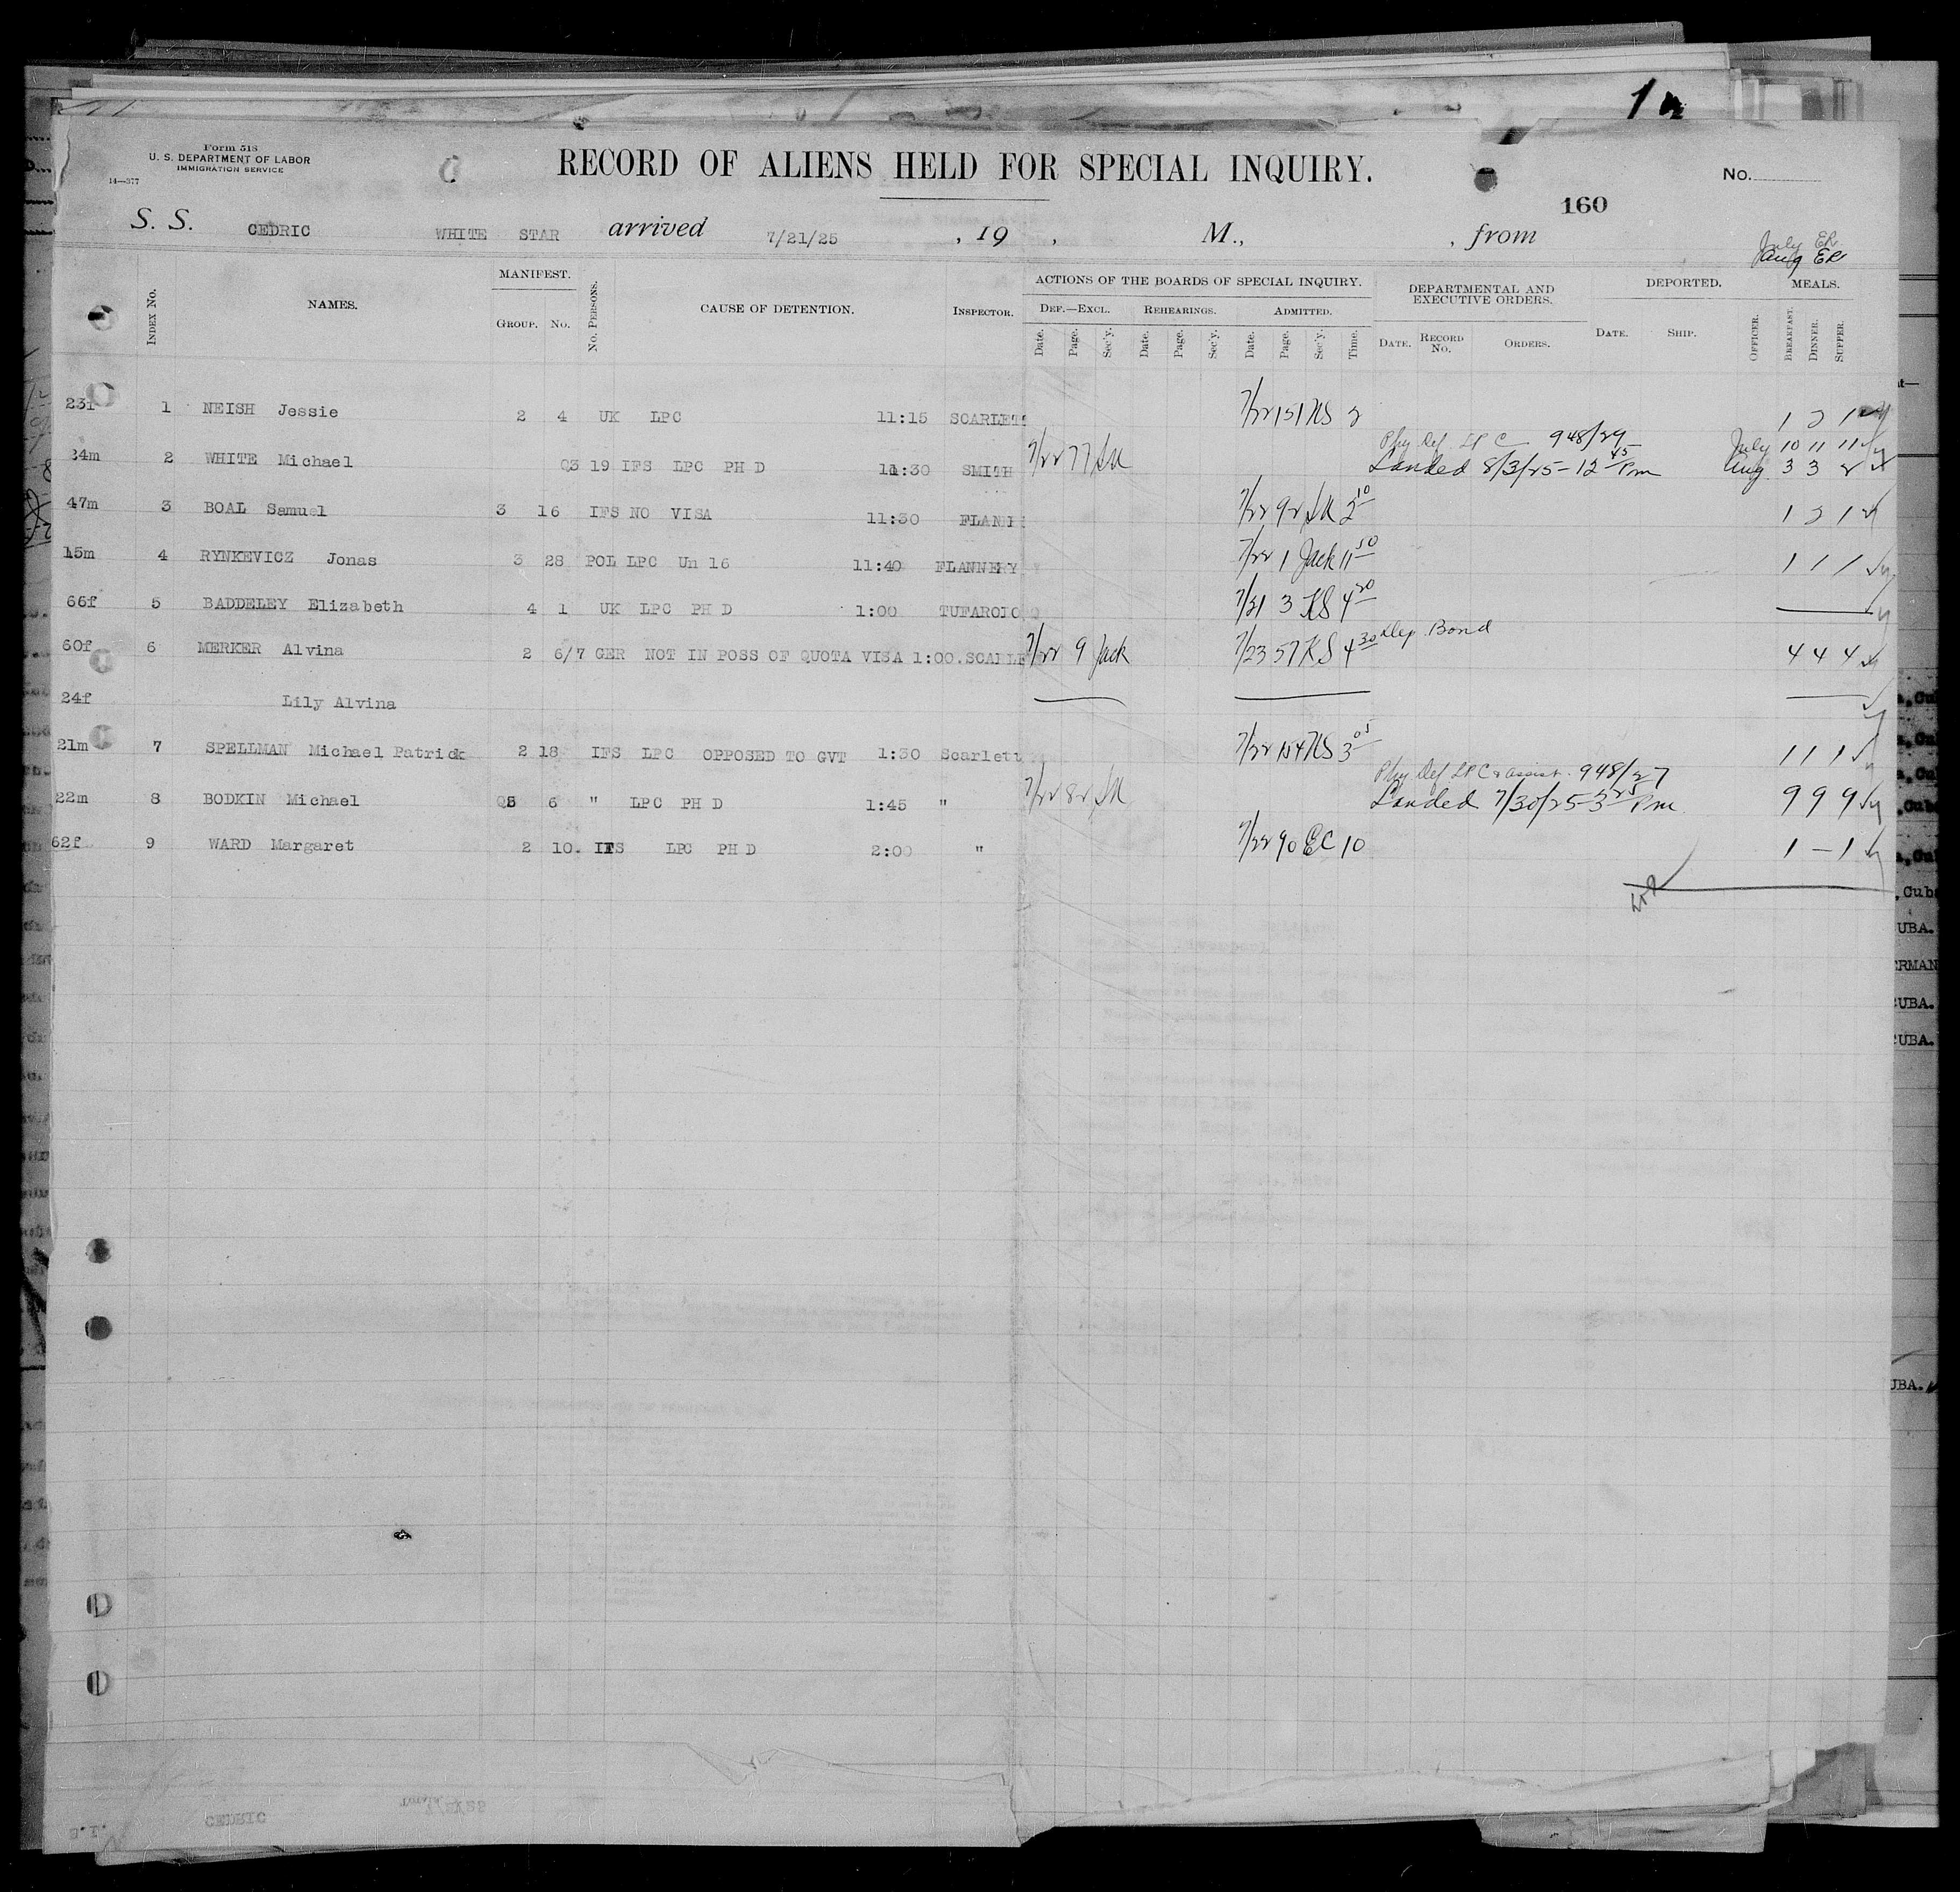 Form 518
U. S. DEPARTMENT OF LABOR
IMMIGRATION SERVICE
14—377
RECORD OF ALIENS HELD FOR SPECIAL INQUIRY.
No.
160
S. S. CEDRIC WHITE STAR arrived 7/21/25 , 19 , M., , from
July ER
Aug ER
INDEX NO. NAMES. MANIFEST. GROUP. NO. No. PERSONS. CAUSE OF DETENTION. INSPECTOR. ACTIONS OF THE BOARDS OF SPECIAL INQUIRY. DEPARTMENTAL AND EXECUTIVE ORDERS. DEPORTED. MEALS.
DEF.—EXCL. REHEARINGS. ADMITTED.
Date. Page. Sec'y. Date. Page. Sec'y. Date. Page. Sec'y. Time. DATE. RECORD No. ORDERS. DATE. SHIP. OFFICER. BREAKFAST. DINNER. SUPPER.
1 NEISH Jessie 2 4 UK LPC 11:15 SCARLET 7/22 151 2 1 2 1
Phy Def LPC 948/29
24m 2 WHITE Michael Q3 19 IFS LPC PH D 11:30 SMITH 7/22 77 July 10 11 11
Landed 8/3/25 – 12 45 Pm Aug 3 3 2
47m 3 BOAL Samuel 3 16 IFS NO VISA 11:30 7/22 92 2 10 1 2 1
15m 4 RYNKEVICZ Jonas 3 28 POL LPC Un 16 11:40 FLANNERY 7/22 1 Jack 11 50 1 1 1
66f 5 BADDELEY Elizabeth 4 1 UK LPC PH D 1:00 7/21 3 KS 4 20
60f 6 MERKER Alvina 2 6/7 GER NOT IN POSS OF QUOTA VISA 1:00. 7/22 9 Jack 7/23 57 KS 4 30 Dep. Bond 4 4 4
24f Lily Alvina
21m 7 SPELLMAN Michael Patrick 2 18 IFS LPC OPPOSED TO GVT 1:30 Scarlett 7/22 154 3 05 1 1 1
Phy Def LPC & assist. 948/27
22m 8 BODKIN Michael 6 " LPC PH D 1:45 " 7/22 82 Landed 7/30/25 – 3 25 Pm 9 9 9
62f 9 WARD Margaret 2 10. IFS LPC PH D 2:00 " 7/22 90 EC 10 1 – 1
CEDRIC